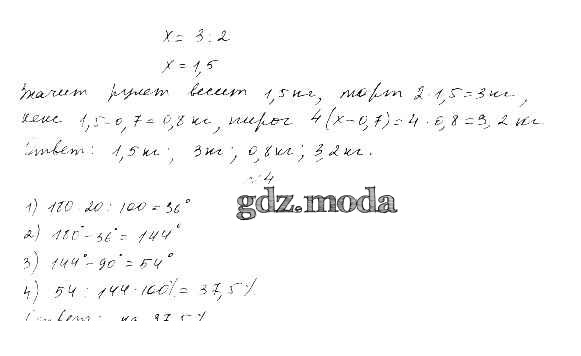 x = 3 : 2
x = 1,5
Значит рулет весит 1,5 кг, торт 2·1,5=3 кг,
кекс 1,5-0,7=0,8 кг, пирог 4(x-0,7)=4·0,8=3,2 кг
Ответ: 1,5 кг; 3 кг; 0,8 кг; 3,2 кг.
№4
gdz.moda
1) 180·20:100=36°
2) 180°-36°=144°
3) 144°-90°=54°
4) 54:144·100%=37,5%
Ответ: на 37,5%